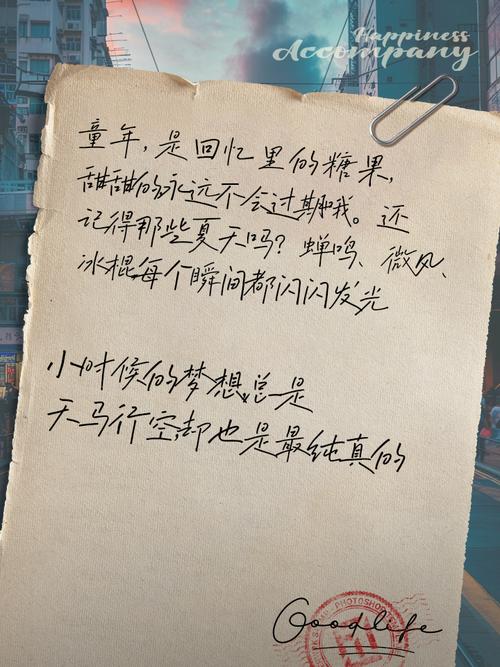 Happiness
Accompany
童年,是回忆里的糖果,
甜甜的永远不会过期哦。还
记得那些夏天吗?蝉鸣、微风、
冰棍每个瞬间都闪闪发光
小时候的梦想总是
天马行空,却也是最纯真的
PHOTOSHOP
Goodlife